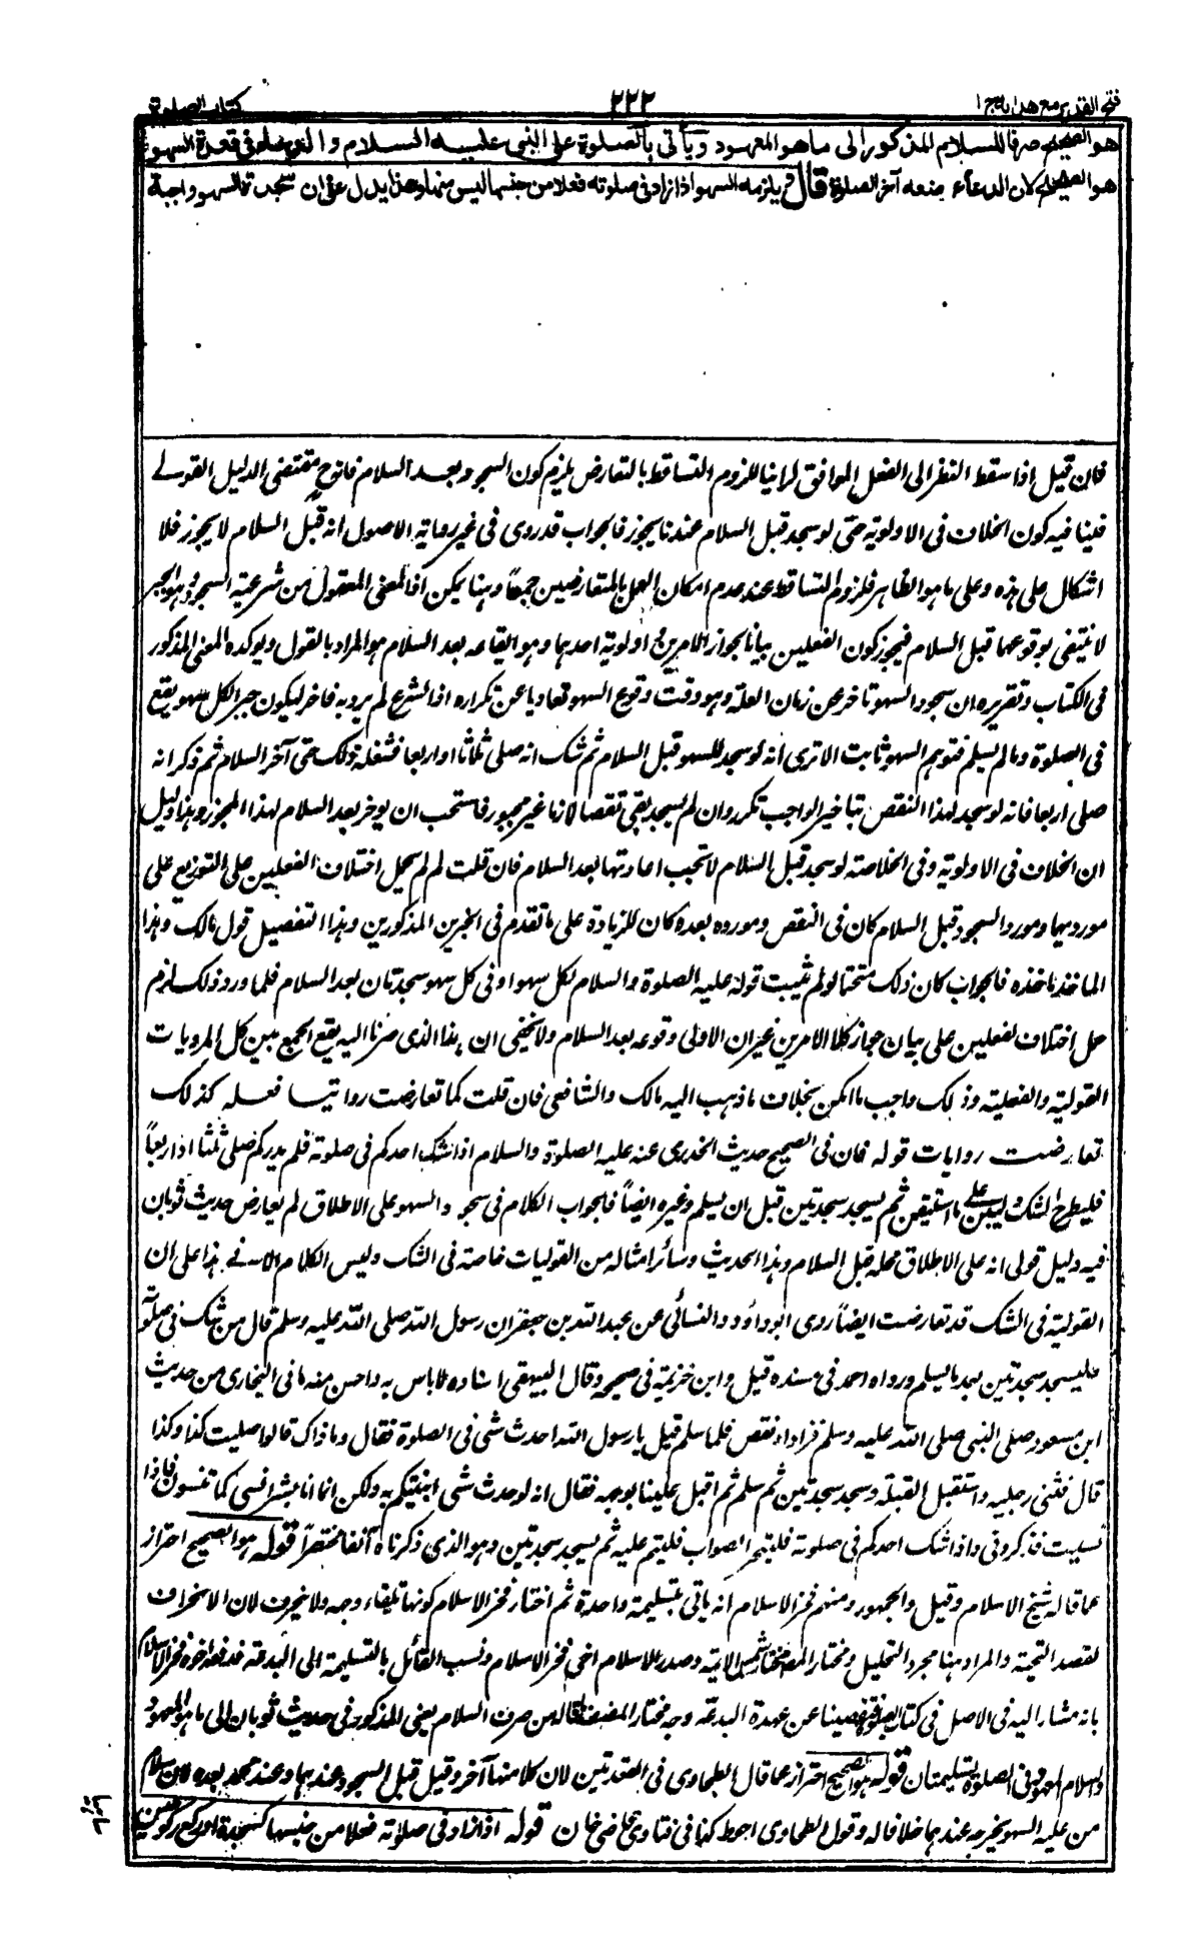 فتح القدير مع هدايه ج ١
٢٢٢
كتاب الصلوة
هو الصحيح صرفا للسلام المذكور الى ما هو المعهود ويأتى بالصلوة على النبى عليه السلام والدعاء فى قعدة السهو
هو الصحيح لان الدعاء موضعه آخر الصلوة قال ويلزمه السهو اذا زاد فى صلوته فعلا من جنسها ليس منها وهذا يدل على ان سجدة السهو واجبة
فان قيل اذا سقط النظر الى الفعل الموافق لرأينا للزوم التساقط بالتعارض يلزم كون السجود بعد السلام فانه ح مقتضى الدليل القولى
قلنا فيه كون الخلاف فى الاولوية حتى لو سجد قبل السلام عندنا يجوز فالجواب قد روى فى غير رواية الاصول انه قبل السلام لا يجوز فلا
اشكال على هذه وعلى ما هو الظاهر فلزوم التساقط عند عدم امكان العمل بالمتعارضين جمعاً وهنا يمكن اذ المعنى المعقول من شرعية السجود وهو الجبر
لا ينتفى بوقوعها قبل السلام فيجوز كون الفعلين بيانا لجواز الامرين اولوية احدهما وهو ايقاعه بعد السلام هو المراد بالقول ويوكده المعنى المذكور
فى الكتاب وتقريره ان سجود السهو تأخر عن زمان العلة وهو وقت وقوع السهو تفاديا عن تكراره اذ الشرع لم يرد به فاخر ليكون جبرا لكل سهو يقع
فى الصلوة وما لم يسلم فتوهم السهو ثابت الا ترى انه لو سجد للسهو قبل السلام ثم شك انه صلى ثلاثا او اربعا فشغله ذلك حتى آخر السلام ثم ذكر انه
صلى اربعا فانه لو سجد لهذا النقص بتاخير الواجب تكرر وان لم يسجد بقى نقصا لازما غير مجبور فاستحب ان يوخر بعد السلام لهذا المجوز وهذا دليل
ان الخلاف فى الاولوية وفى الخلاصة لو سجد قبل السلام لا تجب اعادتها بعد السلام فان قلت لم لم يحمل اختلاف الفعلين على التوزيع على
مورديهما ومورد السجود قبل السلام كان فى النقص ومورده بعده كان للزيادة على ما تقدم فى الخبرين المذكورين وهذا التفصيل قول مالك وهذا
الماخذ ماخذه فالجواب كان ذلك متحتما لو لم يثبت قوله عليه الصلوة والسلام لكل سهو او فى كل سهو سجدتان بعد السلام فلما ورد ذلك لزم
حمل اختلاف الفعلين على بيان جواز كلا الامرين غير ان الاولى وقوعه بعد السلام ولا يخفى ان هذا الذى صرنا اليه يقع الجمع بين كل المرويات
القولية والفعلية وذلك واجب ما امكن بخلاف ما ذهب اليه مالك والشافعى فان قلت كما تعارضت روايتا فعله كذلك
تعارضت روايات قوله فان فى الصحيح حديث الخدرى عنه عليه الصلوة والسلام اذا شك احدكم فى صلوته فلم يدر كم صلى ثلثا او اربعاً
فليطرح الشك وليبن على ما استيقن ثم يسجد سجدتين قبل ان يسلم وغيره ايضاً فالجواب الكلام فى سجود السهو على الاطلاق لم يعارض حديث ثوبان
فيه دليل قولى انه على الاطلاق محله قبل السلام وهذا الحديث وسائر امثاله من القوليات خاصة فى الشك وليس الكلام الا فى هذا على ان
القولية فى الشك قد تعارضت ايضاً روى ابو داؤد والنسائى عن عبد الله بن جعفر ان رسول الله صلى الله عليه وسلم قال من شك فى صلوته
فليسجد سجدتين بعد ما يسلم ورواه احمد فى مسنده قيل وابن خزيمة فى صحيحه وقال البيهقى اسناده لا باس به واحسن منه ما فى البخارى من حديث
ابن مسعود صلى النبى صلى الله عليه وسلم فزاد او نقص فلما سلم قيل يا رسول الله احدث شى فى الصلوة فقال وما ذاك قالوا صليت كذا وكذا
قال فثنى رجليه واستقبل القبلة وسجد سجدتين ثم سلم ثم اقبل علينا بوجهه فقال انه لو حدث شى انبئتكم به ولكن انما انا بشر انسى كما تنسون فاذا
نسيت فذكرونى واذا شك احدكم فى صلوته فليتحر الصواب فليتم عليه ثم ليسجد سجدتين وهو الذى ذكرناه آنفا مختصراً قوله هو الصحيح احتراز
عما قاله شيخ الاسلام وقيل والجمهور ومنهم فخر الاسلام انه ياتى بتسليمة واحدة ثم اختار فخر الاسلام كونها تلقاء وجهه ولا ينحرف لان الانحراف
لقصد التحية والمراد هنا مجرد التحليل ومختار المصنف مختار شمس الائمة وصدر الاسلام اخى فخر الاسلام ونسب القائل بالتسليمة الى البدعة فدفعه اخوه فخر الاسلام
بانه مشار اليه فى الاصل فى كتاب الصلوة فتفصينا عن عهدة البدعة وجه مختار المصنف ما قاله من صرف السلام يعنى المذكور فى حديث ثوبان الى ما هو المعهود
والسلام المعهود فى الصلوة تسليمتان قوله هو الصحيح احتراز عما قال الطحاوى فى القعدتين لان كلا منهما آخر وقيل قبل السجود عندهما وعند محمد بعده لان سلام
من عليه السهو يخرجه عندهما خلافا له وقول الطحاوى احوط كذا فى فتاوى قاضى خان قوله اذا زاد فى صلاته فعلا من جنسها كسجدة او ركع ركوعين